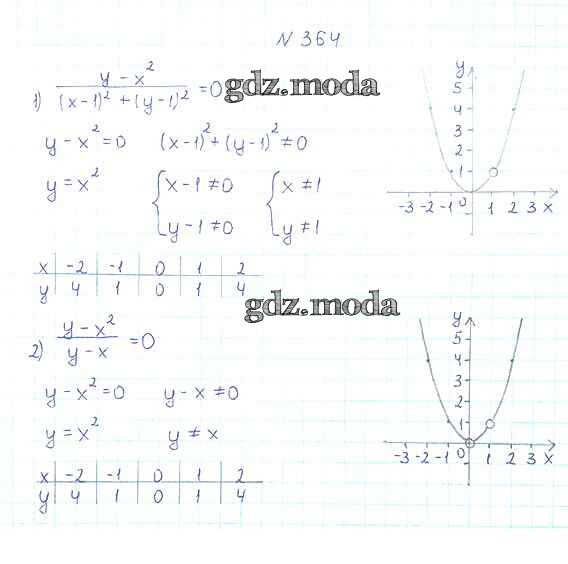 N 364
1) (y - x²)/((x-1)² + (y-1)²) = 0
gdz.moda
y - x² = 0 (x-1)² + (y-1)² ≠ 0
y = x² { x - 1 ≠ 0 { x ≠ 1
y - 1 ≠ 0 y ≠ 1
x -2 -1 0 1 2
y 4 1 0 1 4
y
5
4
3
2
1
-3 -2 -1 0 1 2 3 x
gdz.moda
2) (y - x²)/(y - x) = 0
y - x² = 0 y - x ≠ 0
y = x² y ≠ x
x -2 -1 0 1 2
y 4 1 0 1 4
y
5
4
3
2
1
-3 -2 -1 0 1 2 3 x